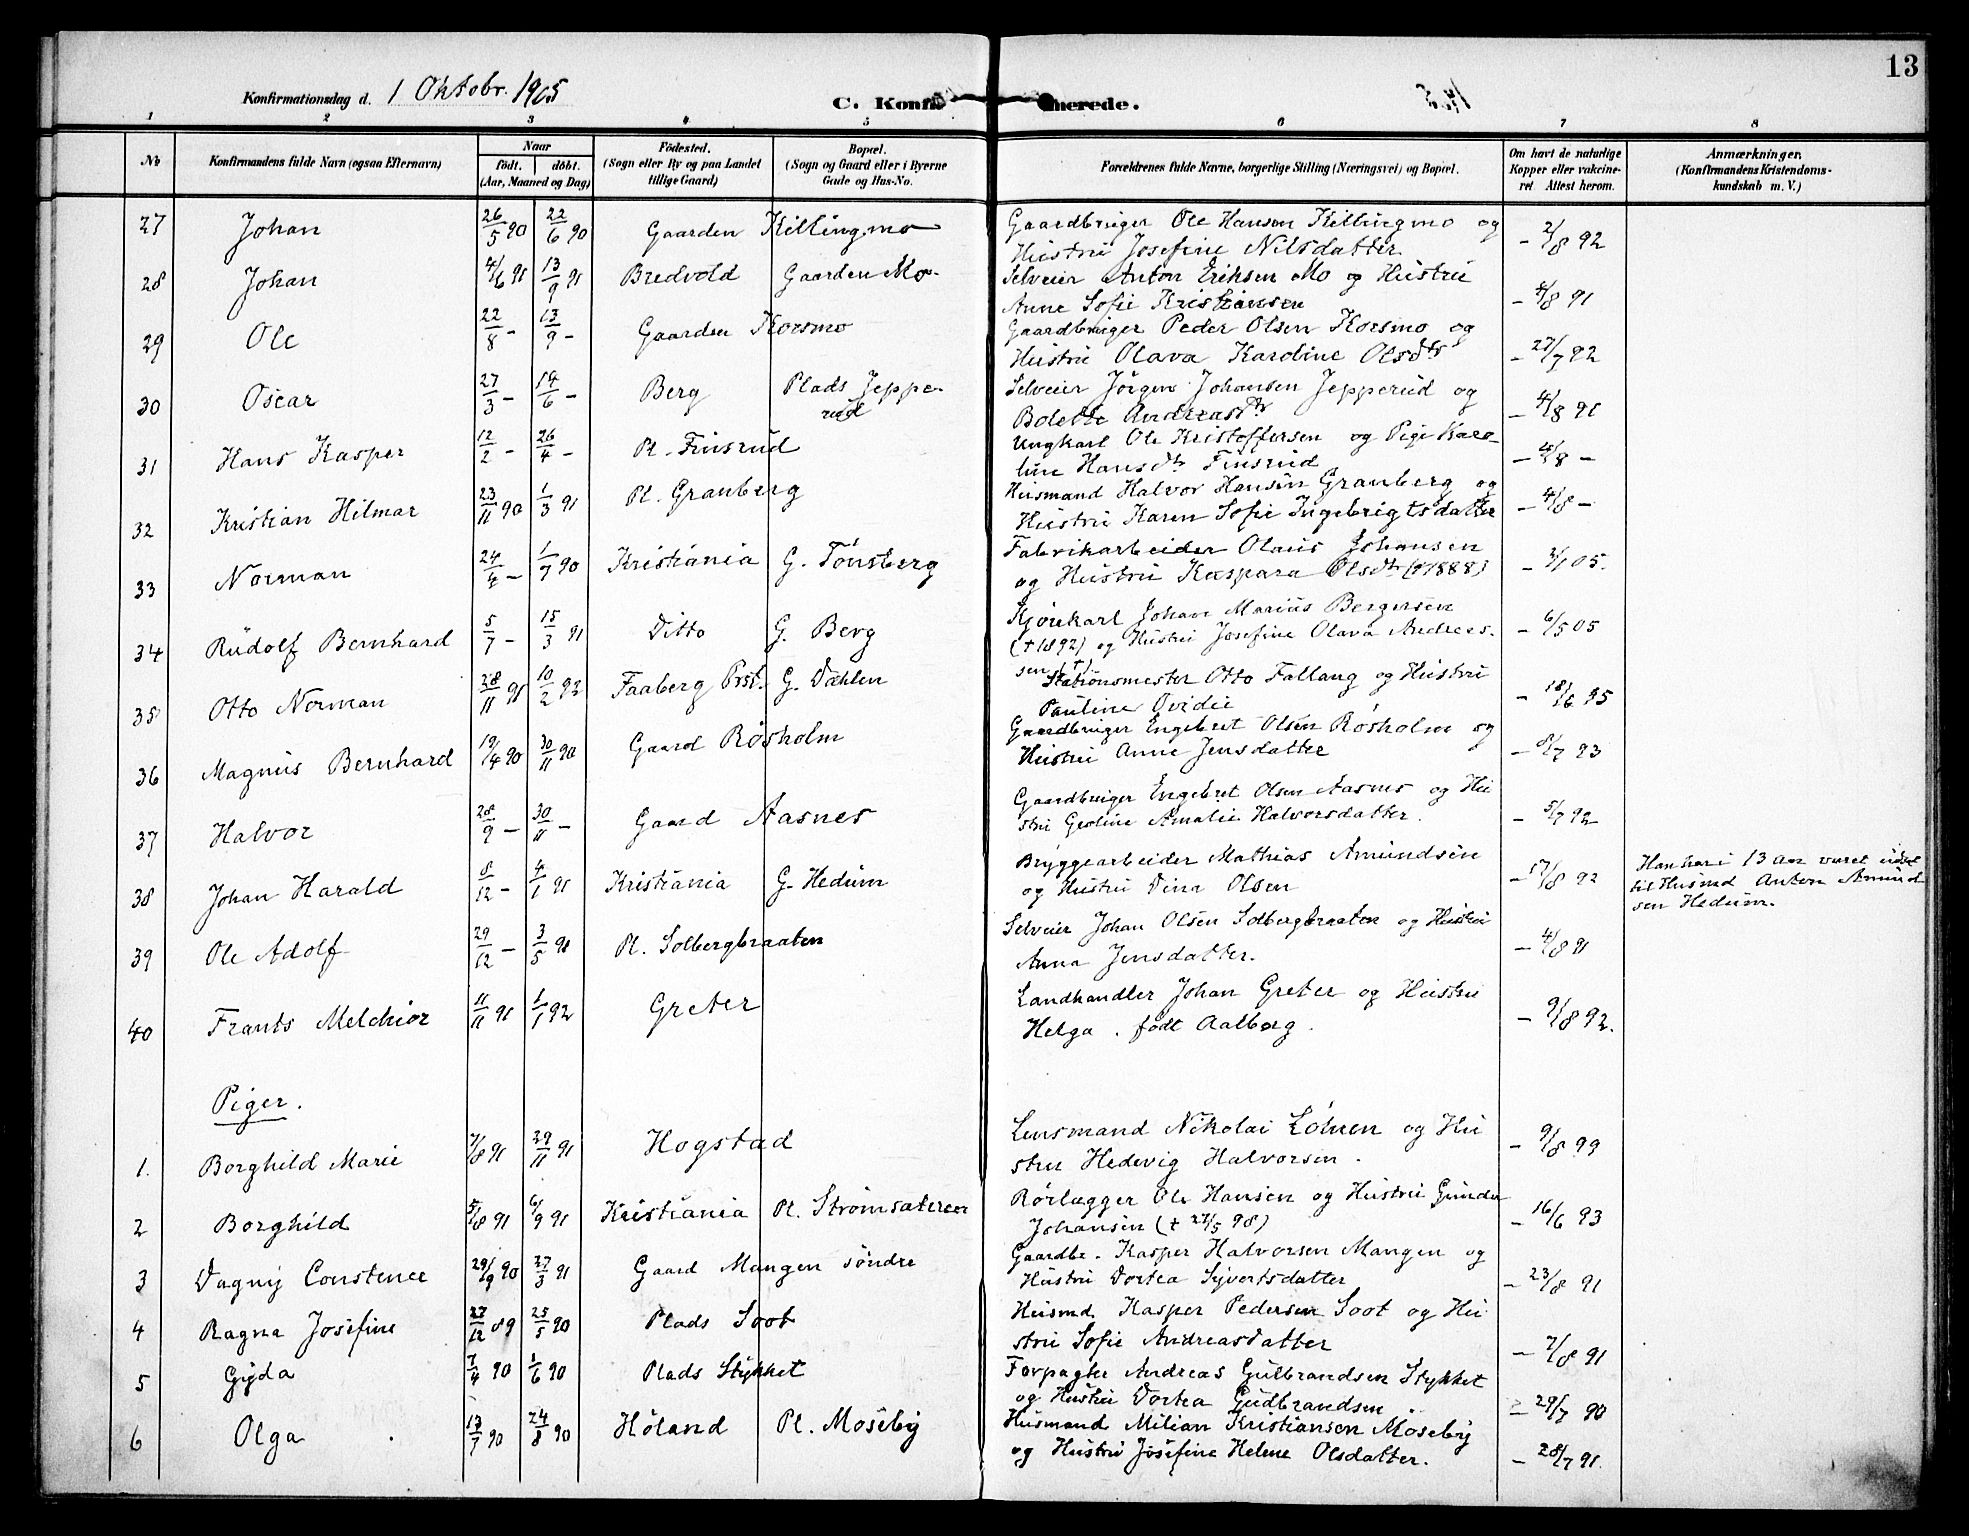 13
Konfirmationsdag d. 1 Oktobr. 1905
C. Konfirmerede.
1 2 3 4 5 6 7 8
No
Konfirmandens fulde Navn (ogsaa Efternavn)
Naar
födt. döbt.
(Aar, Maaned og Dag)
Födested.
(Sogn eller By og paa Landet
tillige Gaard)
Bopæl.
(Sogn og Gaard eller i Byerne
Gade og Hus-No.
Forældrenes fulde Navne, borgerlige Stilling (Næringsvei) og Bopæl.
Om havt de naturlige
Kopper eller vakcine-
ret. Attest herom.
Anmærkninger.
(Konfirmandens Kristendoms-
kundskab m. V.)
27 Johan 26/5 90 22/6 90 Gaarden Killingmo Gaardbruger Ole Hansen Killingmo og
Hustru Josefine Nilsdatter - 2/8 92
28 Johan 4/6 91 13/9 91 Bredvold Gaarden Mo. Selveier Anton Eriksen Mo og Hustru
Anne Sofie Kristiansen - 4/8 91
29 Ole 22/8 - 13/9 - Gaarden Korsmo Gaardbruger Peder Olsen Korsmo og
Hustru Olava Karoline Olsdtr - 27/7 92
30 Oscar 27/3 - 14/6 - Berg Plads Jeppe-
rud Selveier Jörgen Johansen Jepperud og
Bolette Andreasdtr - 4/8 91
31 Hans Kasper 12/2 - 26/4 - Pl. Finsrud Ungkarl Ole Kristoffersen og Pige Karo-
line Hansdtr Finsrud - 4/8 -
32 Kristian Hilmar 23/11 90 1/3 91 Pl. Granberg Husmand Halvor Hansen Granberg og
Hustru Karen Sofie Ingebrigtsdatter - 4/8 -
33 Norman 24/4 - 1/7 90 Kristiania G. Tönsberg Fabrikarbeider Olaus Johansen
og Hustru Kaspara Olsdtr (†1888) - 05.
34 Rudolf Bernhard 5/7 - 15/3 91 Ditto G. Berg Kjörekarl Johan Marius Bergersen
(†1892) og Hustru Josefine Olava Andreas-
sen (†) - 6/5 05
35 Otto Norman 28/11 91 10/2 92 Faaberg Prst. G. Dæhlen Stationsmester Otto Fallang og Hustru
Pauline Ovidie - 18/6 95
36 Magnus Bernhard 19/4 90 30/11 90 Gaard Rösholm Gaardbruger Engebret Olsen Rösholm og
Hustru Anne Jensdatter - 8/7 93
37 Halvor 28/9 - 30/11 - Gaard Aasnes Gaardbruger Engebret Olsen Aasnes og Hu
stru Geoline Amalie Halvorsdatter. - 5/7 92
38 Johan Harald 8/12 - 4/1 91 Kristiania G. Hedum Bryggearbeider Mathias Amundsen
og Hustru Dina Olsen - 17/8 92 Han har i 13 aar været udsat
til Husmd Anton Amund
sen Hedum.
39 Ole Adolf 29/12 - 3/5 91 Pl. Solbergbraaten Selveier Johan Olsen Solbergbraaten og Hustru
Anna Jensdatter. - 4/8 91
40 Frants Melchior 11/11 91 1/1 92 Greter Landhandler Johan Greter og Hustru
Helga . född Aalborg. - 9/8 92.
Piger.
1. Borghild Marie 7/8 91 29/11 91 Hogstad Lensmand Nikolai Löhren og Hu
stru Hedevig Halvorsen. - 9/8 99
2 Borghild 5/8 91 6/9 91 Kristiania Pl. Strömsæteren Rörlægger Ole Hansen og Hustru Gunda
Johansen († 27/5 98) - 16/6 93
3 Dagny Constence 29/9 90 27/3 91 Gaard Mangen söndre Gaardbr. Kasper Halvorsen Mangen og
Hustru Dortea Syvertsdatter - 23/8 91
4 Ragna Josefine 27/12 89 25/5 90 Plads Soot Husmd. Kasper Pedersen Soot og Hu-
stru Sofie Andreasdatter - 7/8 91
5 Gyda 7/4 90 1/6 90 Plads Stykket Forpagter Andreas Gulbrandsen Stykket
og Hustru Dortea Gudbrandsen - 29/7 90
6 Olga 13/7 90 24/8 90 Höland Pl. Moseby Husmand Milian Kristiansen Moseby
og Hustru Josefine Helene Olsdatter. - 28/7 91.